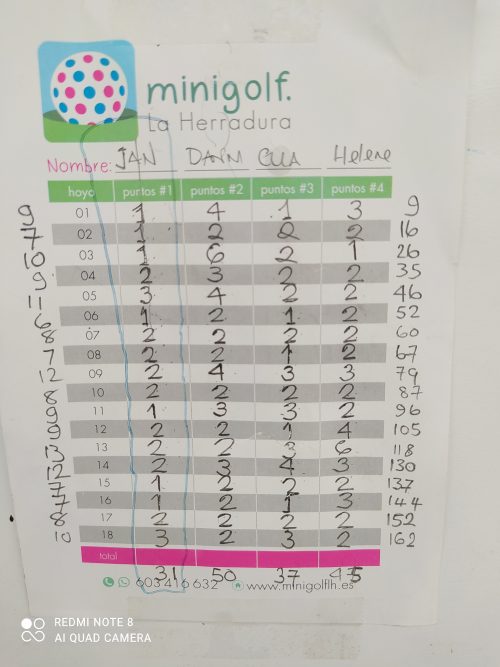 minigolf.
La Herradura
Nombre: JAN DANM CUA Helene
hoyo puntos #1 puntos #2 puntos #3 puntos #4
9 01 1 4 1 3 9
7 02 1 2 2 2 16
10 03 1 6 2 1 26
9 04 2 3 2 2 35
11 05 3 4 2 2 46
6 06 1 2 1 2 52
8 07 2 2 2 2 60
7 08 2 2 1 2 67
12 09 2 4 3 3 79
8 10 2 2 2 2 87
9 11 1 3 3 2 96
9 12 2 2 1 4 105
13 13 2 2 3 6 118
12 14 2 3 4 3 130
7 15 1 2 2 2 137
7 16 1 2 1 3 144
8 17 2 2 2 2 152
10 18 3 2 3 2 162
total
31 50 37 45
603 416 632 www.minigolflh.es
REDMI NOTE 8
AI QUAD CAMERA